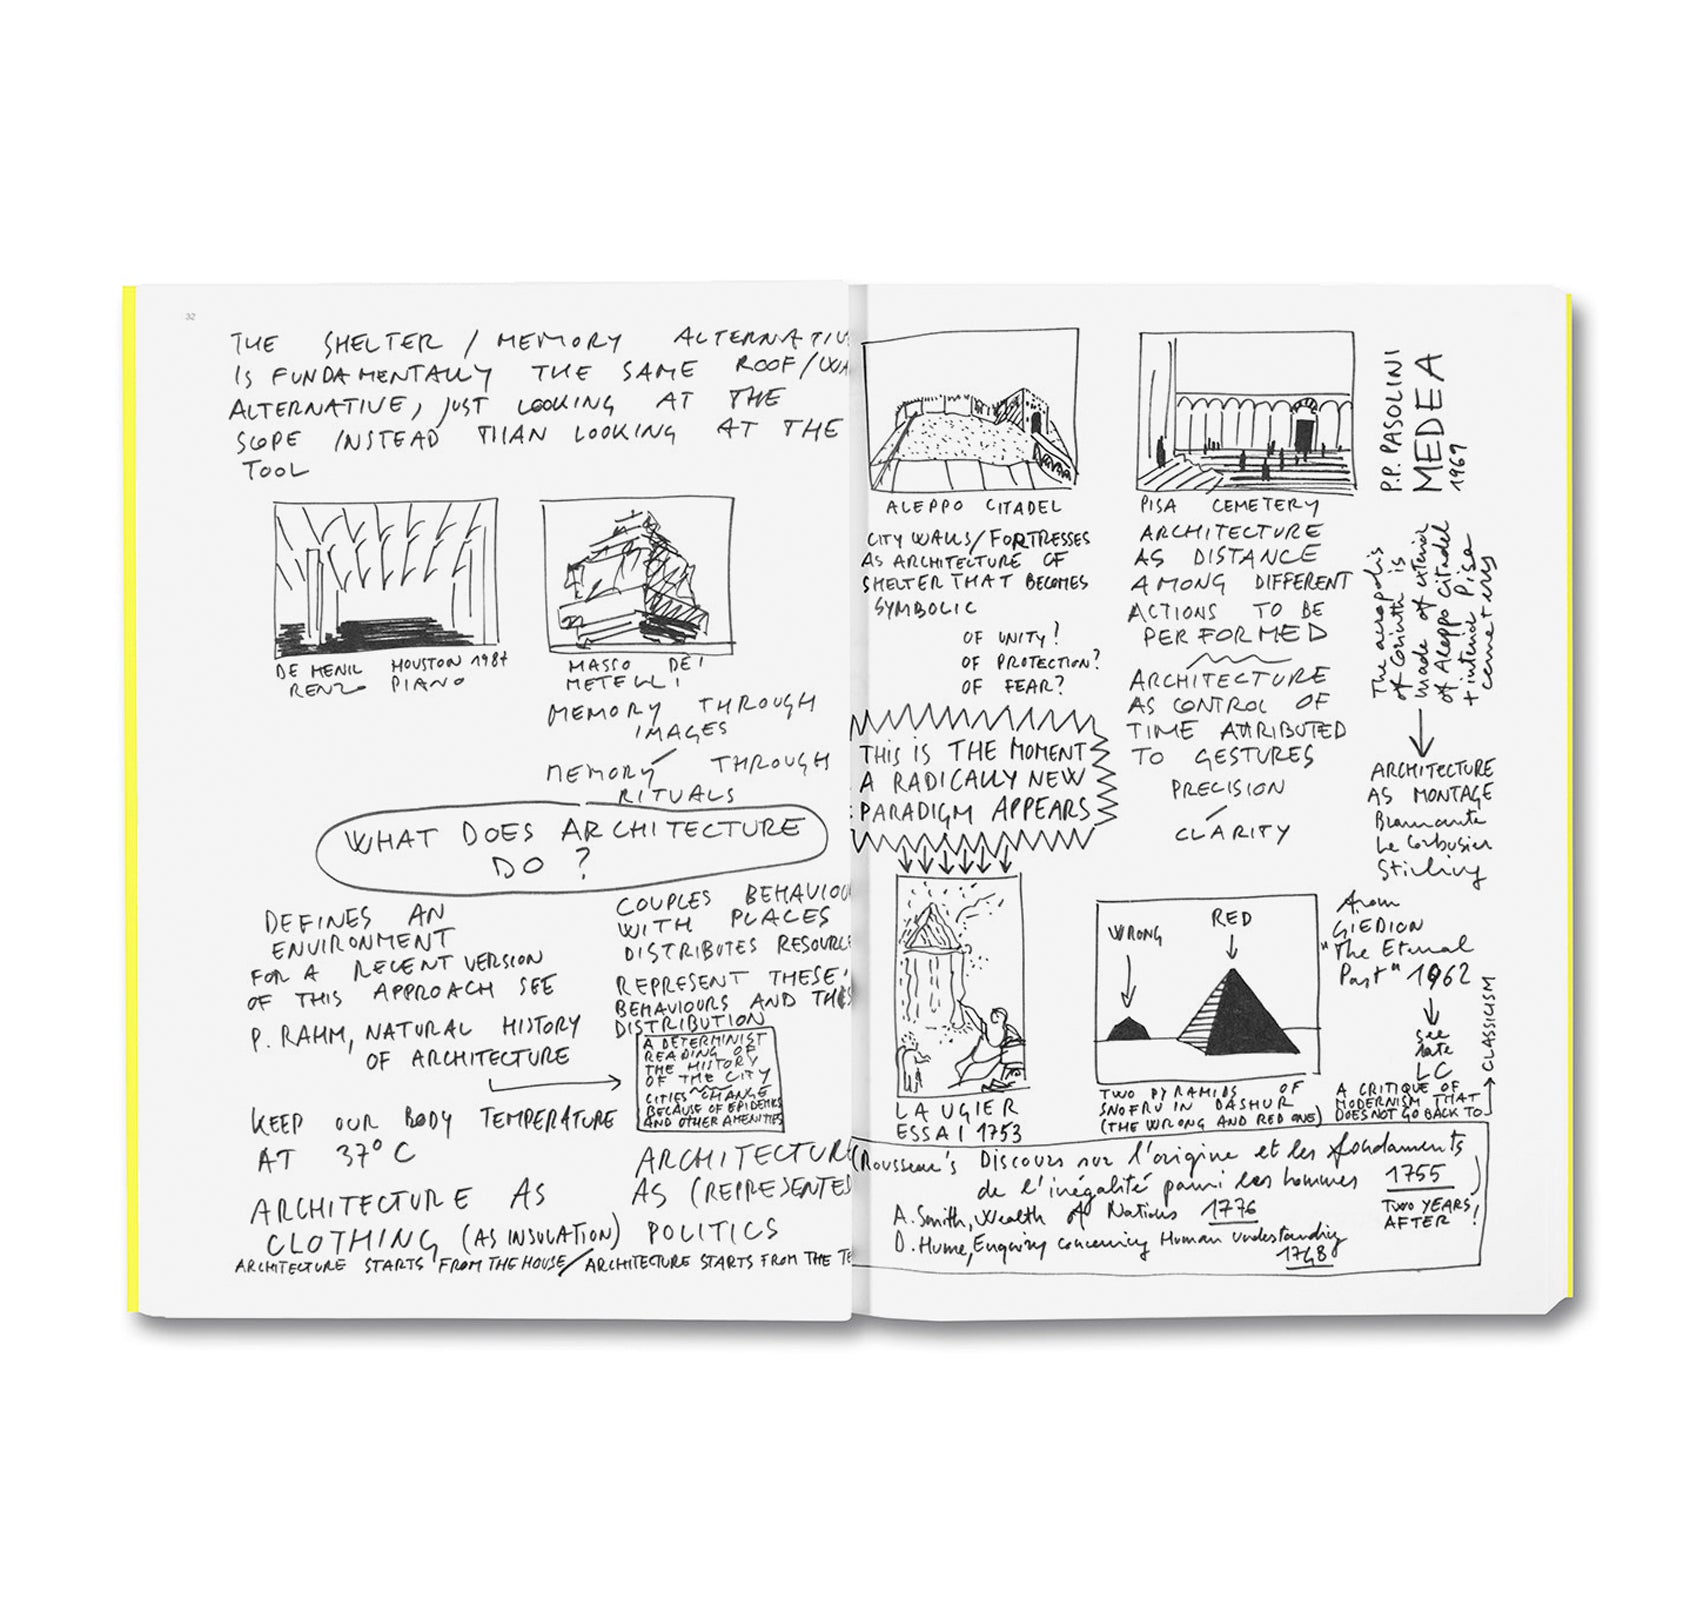 32
THE SHELTER / MEMORY ALTERNATIV
IS FUNDAMENTALLY THE SAME ROOF/WA
ALTERNATIVE, JUST LOOKING AT THE
SCOPE INSTEAD THAN LOOKING AT THE
TOOL
DE MENIL HOUSTON 1987
RENZO PIANO
MASSO DEI
METELLI
MEMORY THROUGH
IMAGES
/
MEMORY THROUGH
RITUALS
WHAT DOES ARCHITECTURE
DO ?
DEFINES AN
ENVIRONMENT
FOR A RECENT VERSION
OF THIS APPROACH SEE
P. RAHM, NATURAL HISTORY
OF ARCHITECTURE
KEEP OUR BODY TEMPERATURE
AT 37° C
ARCHITECTURE AS
CLOTHING (AS INSULATION)
COUPLES BEHAVIOU
WITH PLACES
DISTRIBUTES RESOURCE
REPRESENT THESE
BEHAVIOURS AND THIS
DISTRIBUTION
A DETERMINIST
READING OF
THE HISTORY
OF THE CITY
CITIES CHANGE
BECAUSE OF EPIDEMICS
AND OTHER AMENITIES
ARCHITECTURE
AS (REPRESENTED
POLITICS
ARCHITECTURE STARTS FROM THE HOUSE/ARCHITECTURE STARTS FROM THE TE
ALEPPO CITADEL
CITY WALLS/FORTRESSES
AS ARCHITECTURE OF
SHELTER THAT BECOMES
SYMBOLIC
OF UNITY?
OF PROTECTION?
OF FEAR?
THIS IS THE MOMENT
A RADICALLY NEW
PARADIGM APPEARS
LAUGIER
ESSAI 1753
PISA CEMETERY
ARCHITECTURE
AS DISTANCE
AMONG DIFFERENT
ACTIONS TO BE
PERFORMED
ARCHITECTURE
AS CONTROL OF
TIME ATTRIBUTED
TO GESTURES
PRECISION
/
CLARITY
P.P. PASOLINI
MEDEA
1969
The acropolis
of Corinth is
made of exterior
of Aleppo Citadel
+ interior Pisa
cemetery
ARCHITECTURE
AS MONTAGE
Bramante
Le Corbusier
Stirling
WRONG
RED
TWO PYRAMIDS OF
SNOFRU IN DASHUR
(THE WRONG AND RED ONE)
from
GIEDION
"The Eternal
Past" 1962
see
late
LC
A CRITIQUE OF
MODERNISM THAT
DOES NOT GO BACK TO
CLASSICISM
(Rousseau's Discours sur l'origine et les fondaments
de l'inégalité parmi les hommes 1755 )
TWO YEARS
AFTER!
A. Smith, Wealth of Nations 1776
D. Hume, Enquiry concerning Human understanding
1748